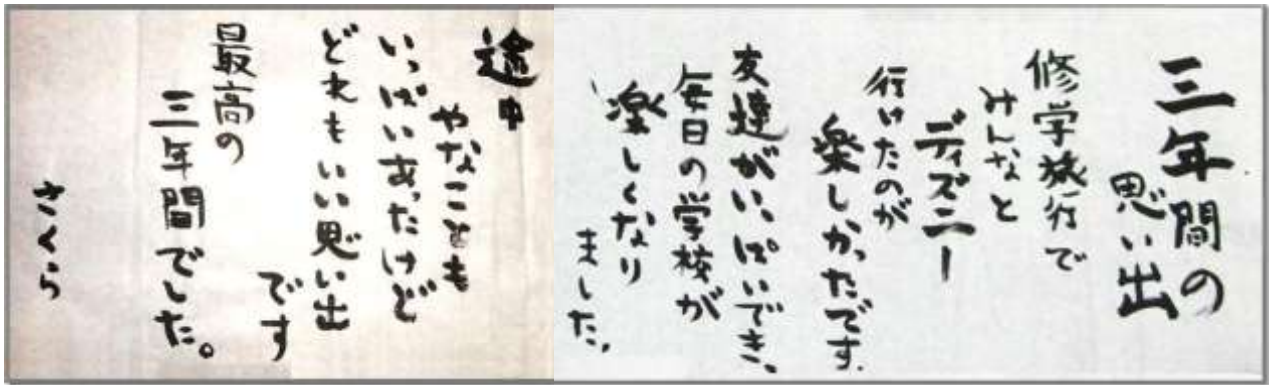 三年間の
思い出
修学旅行で
みんなと
ディズニー
行けたのが
楽しかったです.
友達がいっぱいでき、
毎日の学校が
楽しくなり
ました.
途中
やなことも
いっぱいあったけど
どれもいい思い出
です
最高の
三年間でした。
さくら